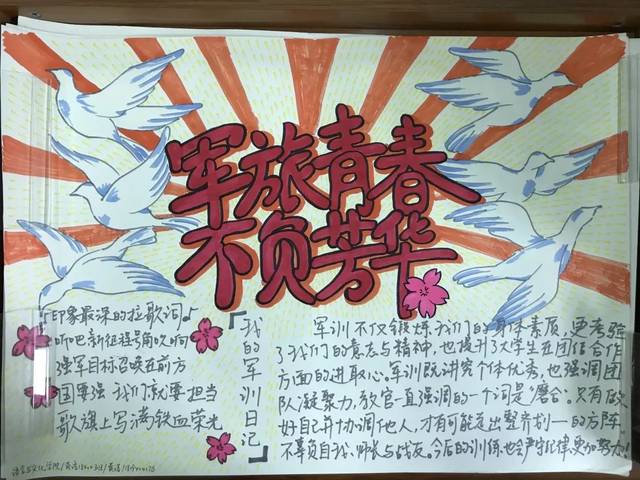 军旅青春
不负芳华
印象最深的拉歌词
听吧新征程号角吹响
强军目标召唤在前方
国要强 我们就要担当
歌旗上写满铁血荣光
我的军训日记
军训不仅锻炼我们的身体素质,更考验
了我们的意志与精神,也提升了大学生在团结合作
方面的进取心。军训既讲究个体优秀,也强调团
队凝聚力,教官一直强调的一个词是"磨合"。只有做
好自己并协调他人,才有可能走出整齐划一的方阵
不辜负自我、师长与战友。今后的训练也会严守纪律,更加努力!